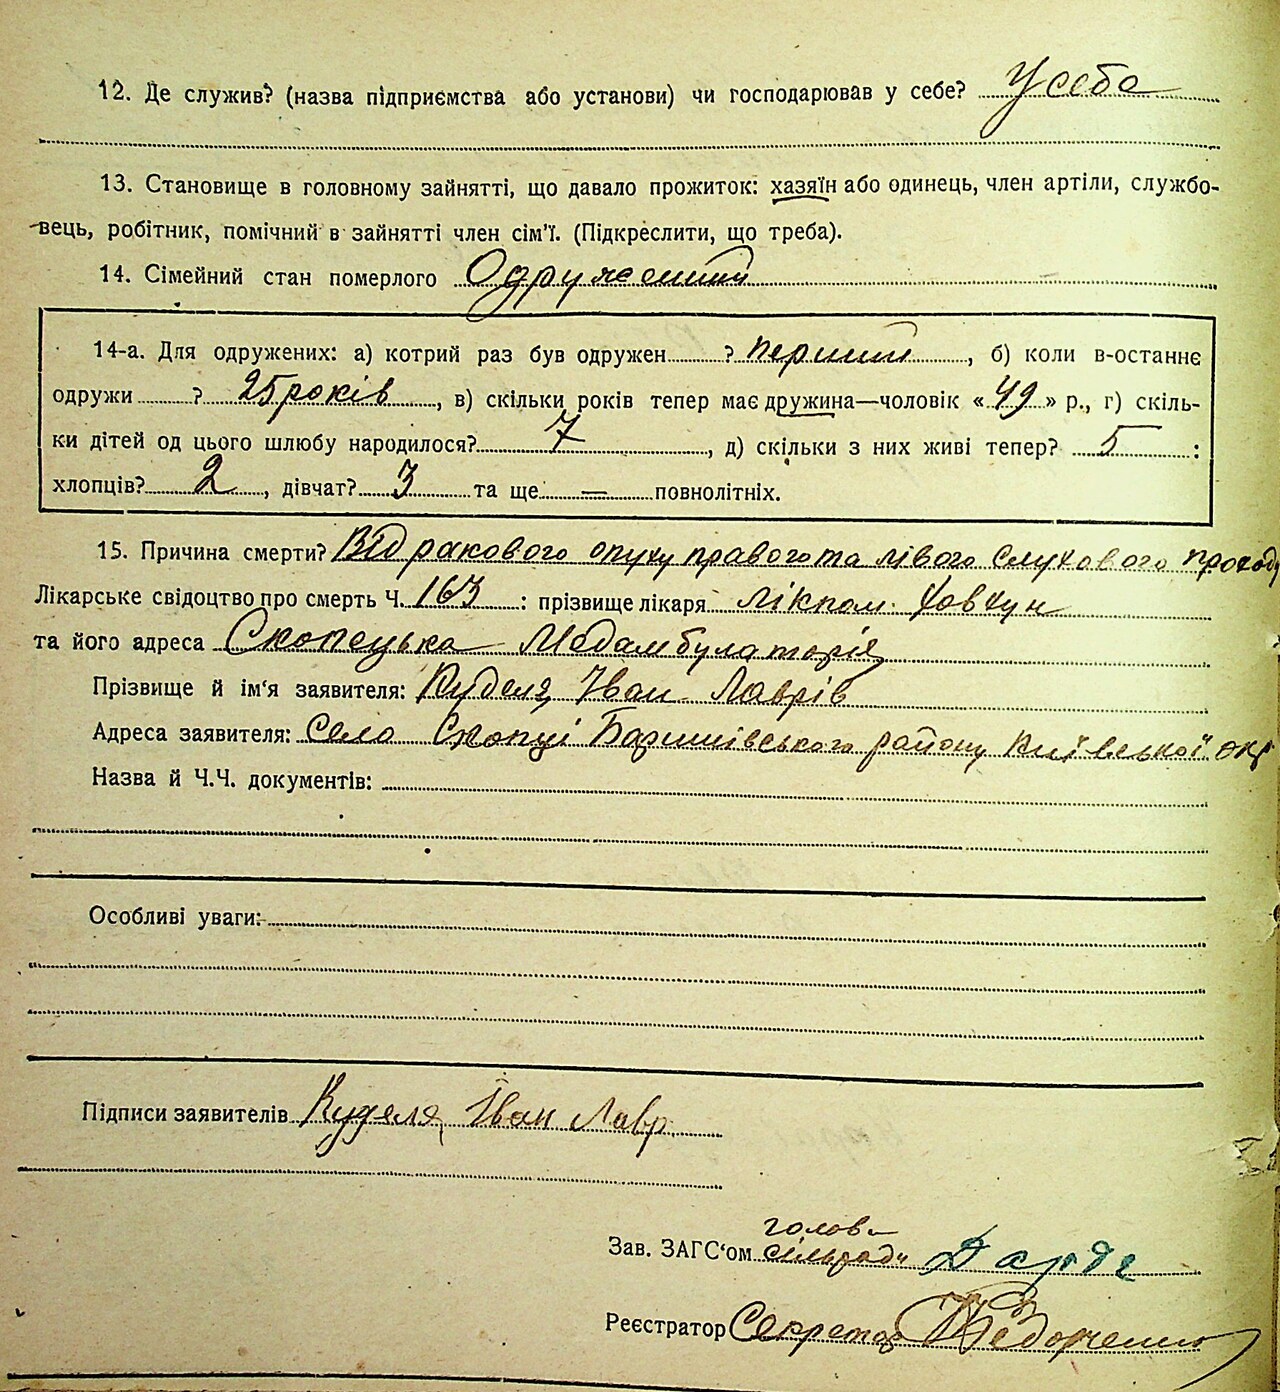 12. Де служив? (назва підприємства або установи) чи господарював у себе? У себе
13. Становище в головному зайнятті, що давало прожиток: хазяїн або одинець, член артіли, службо-
вець, робітник, помічний в зайнятті член сім'ї. (Підкреслити, що треба).
14. Сімейний стан померлого Одружений
14-а. Для одружених: а) котрий раз був одружен ? перший, б) коли в-останнє
одружи ? 25 років, в) скільки років тепер має дружина—чоловік «49» р., г) скіль-
ки дітей од цього шлюбу народилося? 7, д) скільки з них живі тепер? 5:
хлопців? 2, дівчат? 3 та ще — повнолітніх.
15. Причина смерти? Від ракового опуху правого та лівого слухового проходу
Лікарське свідоцтво про смерть Ч. 163: прізвище лікаря лікпом. Ховхун
та його адреса Скопецька Медамбулаторія
Прізвище й ім'я заявителя: Куделя Іван Лаврів
Адреса заявителя: Село Скопці Баришівського району Київської окр
Назва й Ч.Ч. документів:
Особливі уваги:
Підписи заявителів Куделя Іван Лавр.
голова
Зав. ЗАГС'ом сільради
Реєстратор Секретар Федорченко